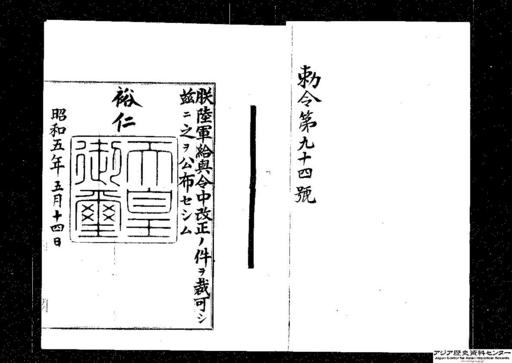 勅令第九十四號
朕陸軍給與令中改正ノ件ヲ裁可シ
茲ニ之ヲ公布セシム
裕仁
天皇
御璽
昭和五年五月十四日
アジア歴史資料センター
Japan Center for Asian Historical Records